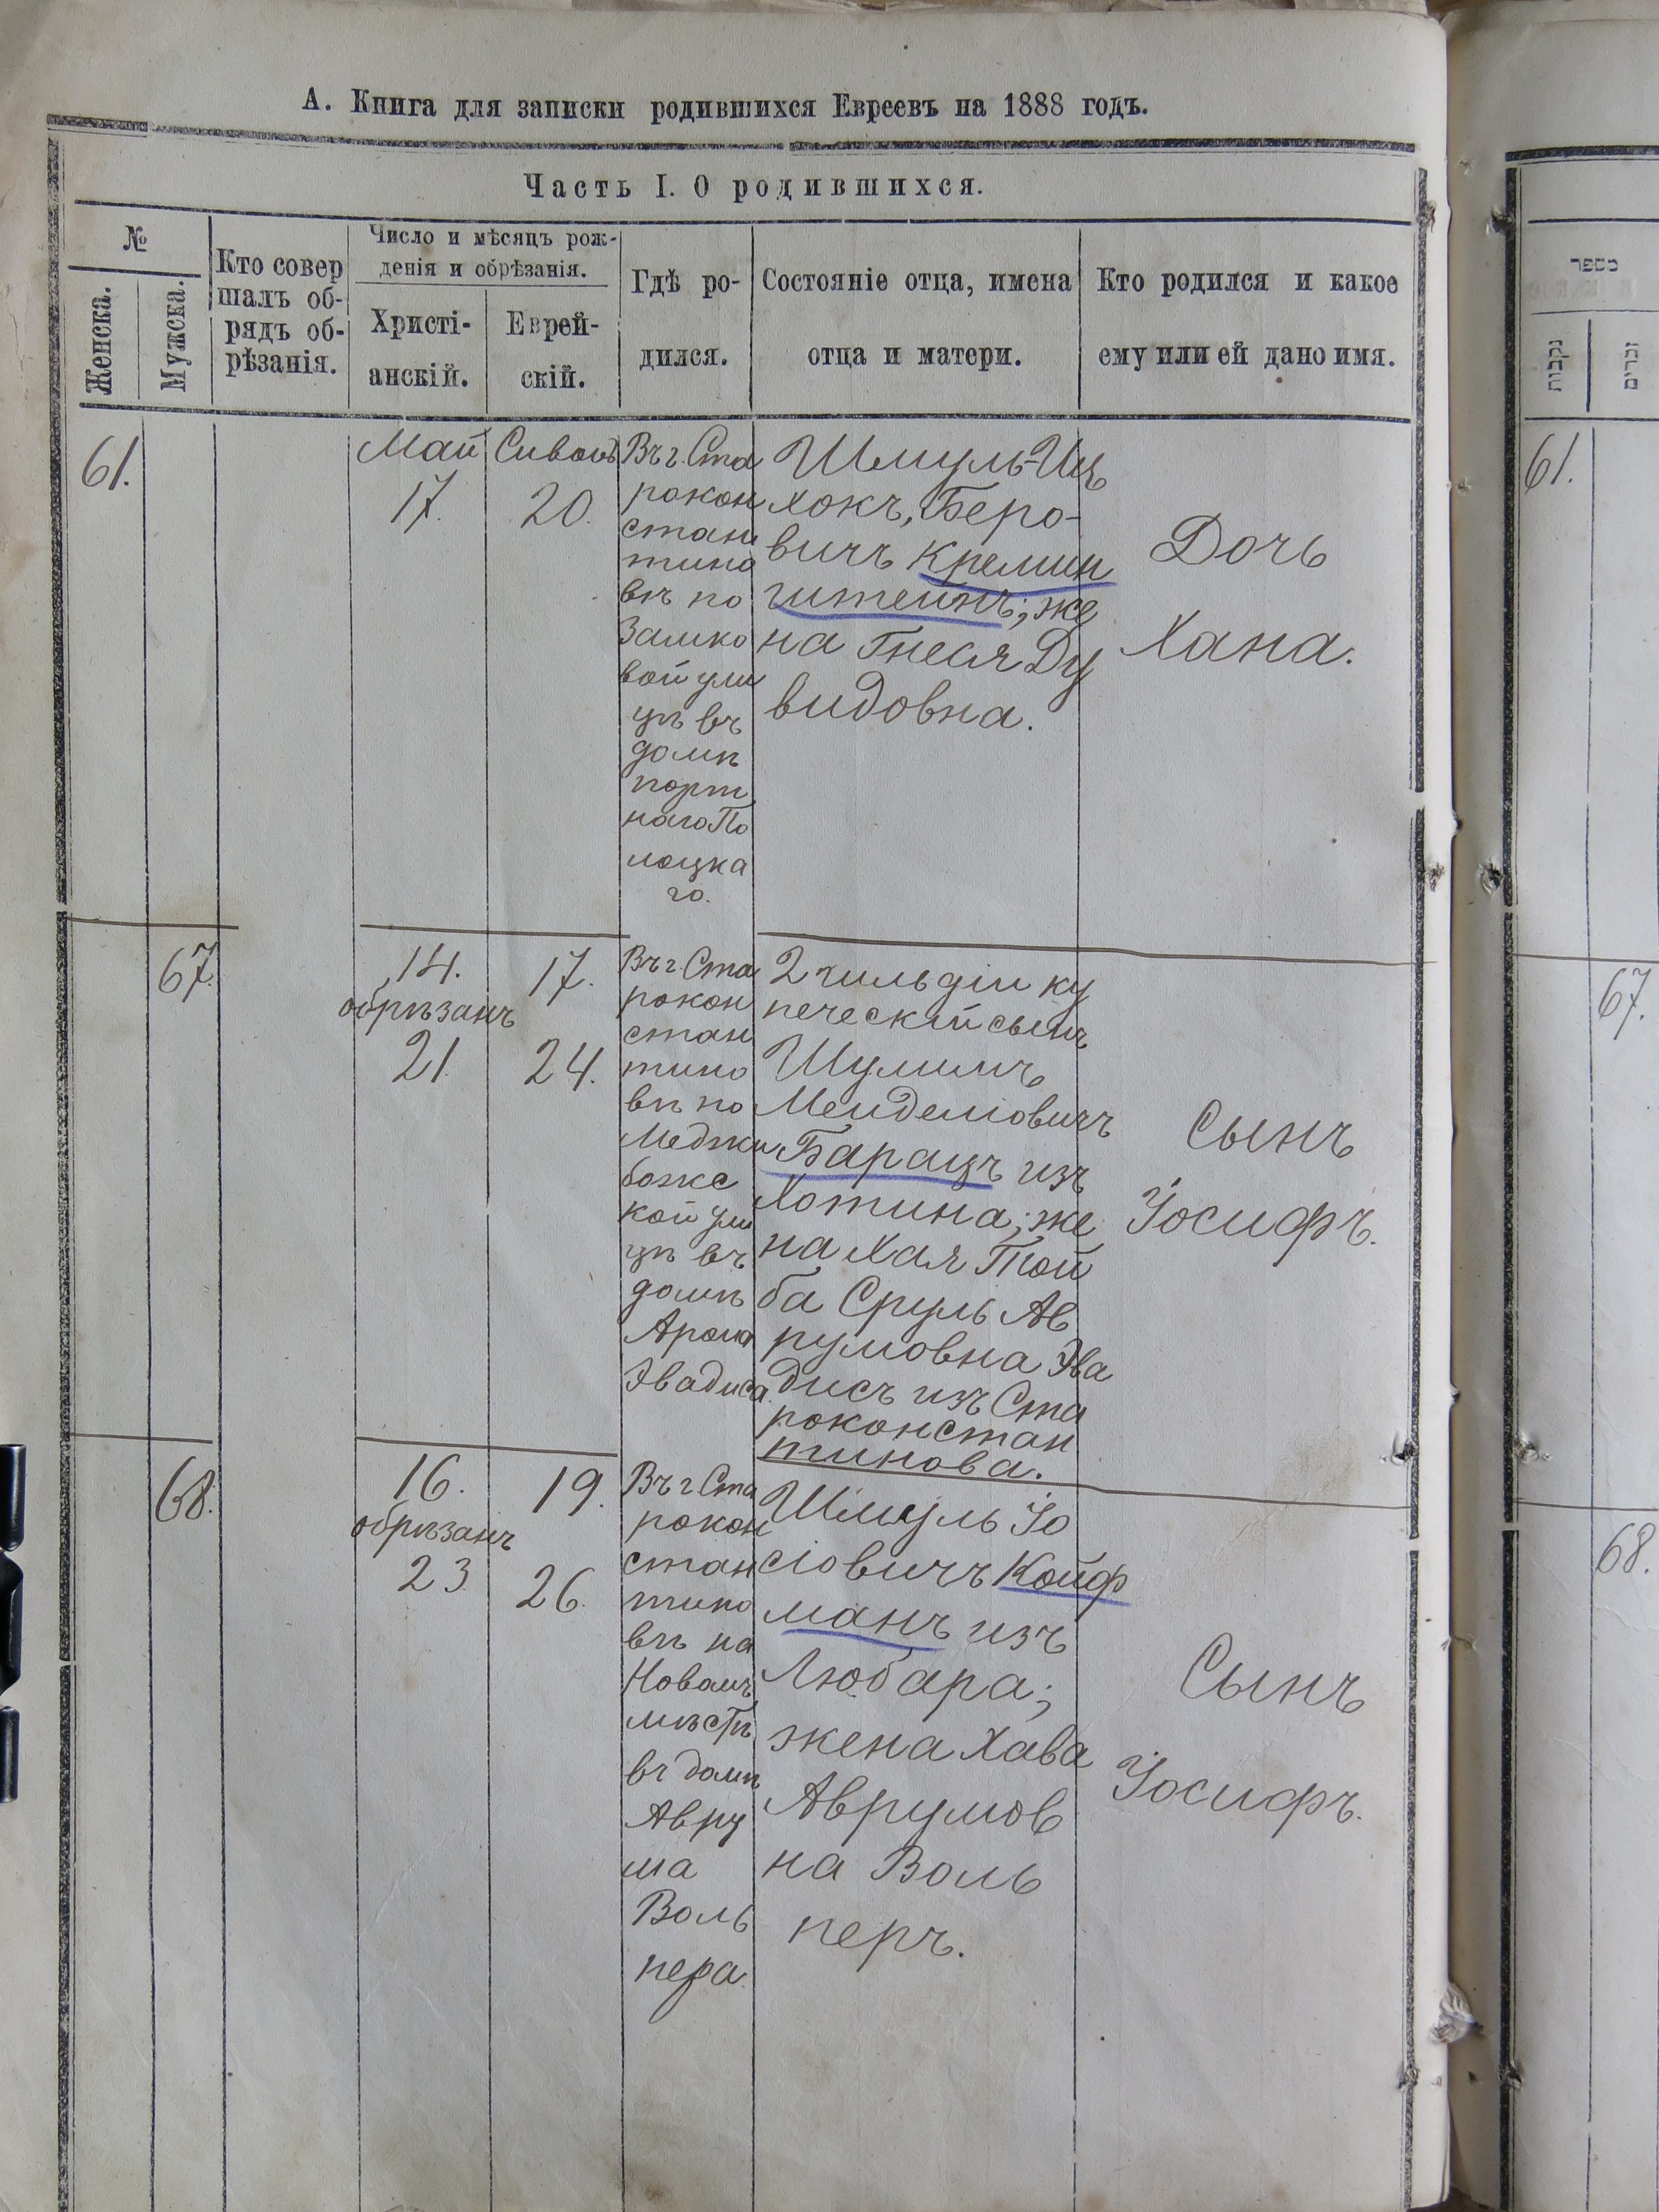 А. Книга для записки родившихся Евреевъ на 1888 годъ.
Часть I. О родившихся.
№
Женска.
Мужска.
Кто совер
шалъ об-
рядъ об-
рѣзанія.
Число и мѣсяцъ рож-
денія и обрѣзанія.
Христі-
анскій.
Еврей-
скій.
Гдѣ ро-
дился.
Состояніе отца, имена
отца и матери.
Кто родился и какое
ему или ей дано имя.
61.
Май
17.
Сивонъ
20.
Въ г. Ста
рокон
стан
тино
вѣ по
Замко
вой ули
цѣ въ
домѣ
порт
наго По
лоцка
го.
Шмуль-Иц
хокъ, Беро-
вичъ Кремин
штейнъ; же
на Гнеся Ду
видовна.
Дочь
Хана.
67.
14.
обрѣзанъ
21.
17.
24.
Въ г. Ста
рокон
стан
тино
вѣ по
Меджи
божс
кой ули
цѣ въ
домѣ
Арона
Эвадиса.
2 гильдіи ку
печескій сынъ
Шулимъ
Менделіовичъ
Барацъ изъ
Хотина; же
на Хая Той
ба Сруль Ав
румовна Эва
дисъ изъ Ста
роконстан
тинова.
Сынъ
Іосифъ.
68.
16.
обрѣзанъ
23.
19.
26.
Въ г. Ста
рокон
стан
тино
вѣ на
Новомъ
мѣстѣ
въ домѣ
Авру
ма
Воль
пера.
Шмуль Іо
сіовичъ Койф
манъ изъ
Любара;
жена Хава
Аврумов
на Воль
перъ.
Сынъ
Іосифъ.
מספר
נקבות
זכרים
61.
67.
68.